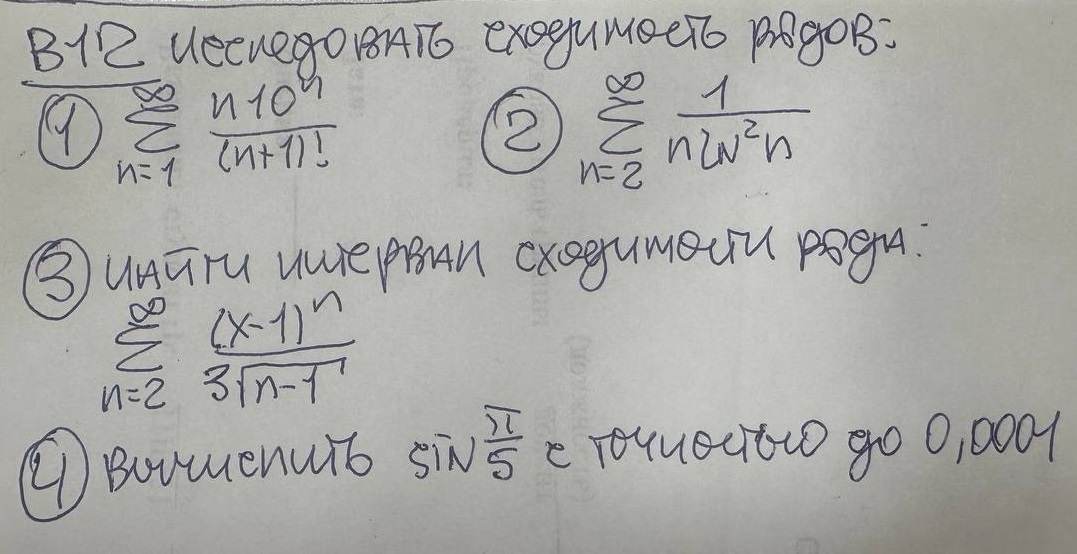 В12 исследовать сходимость рядов:
① ∞ Σ n=1 n10ⁿ/(n+1)! ② ∞ Σ n=2 1/(n ln²n)
③ найти интервал сходимости ряда:
∞ Σ n=2 (x-1)ⁿ/(3√(n-1))
④ вычислить sin π/5 с точностью до 0,0001